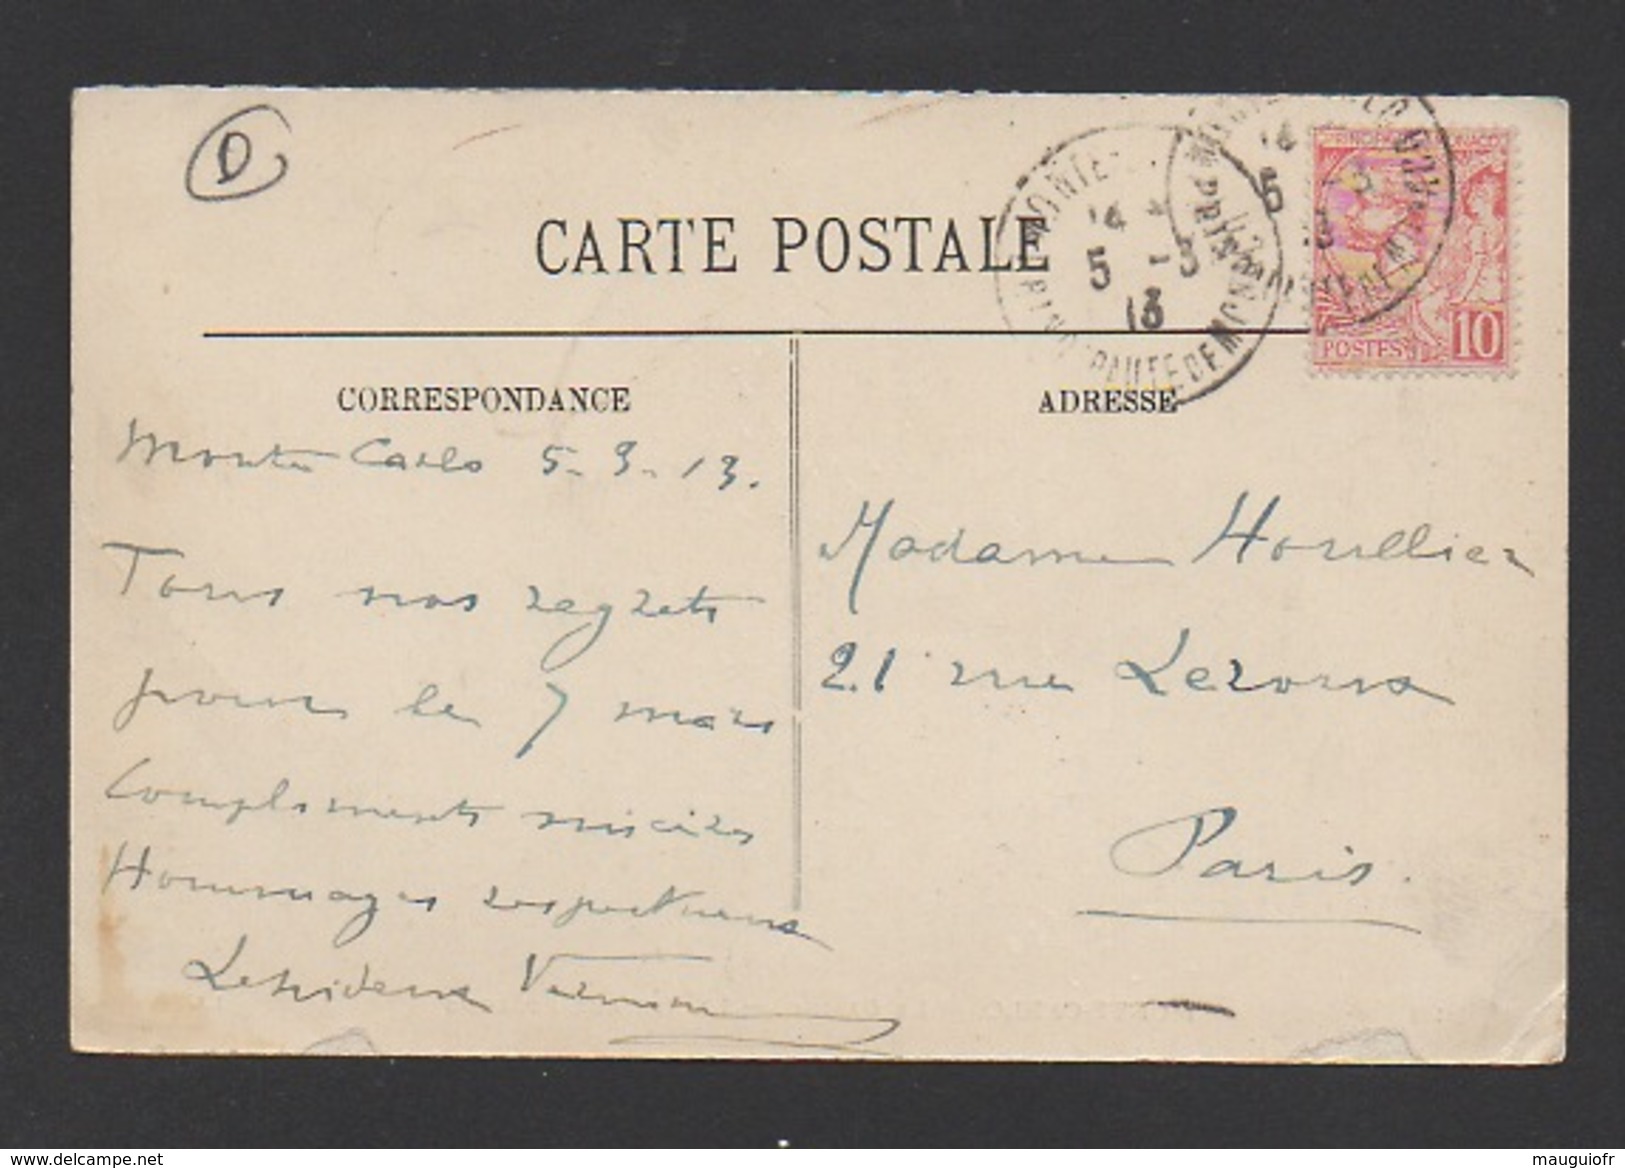 D
CARTE POSTALE
MONTE
14
5 -3
13
PRINCIPAUTE DE MON
14
5
13
POSTES 10
CORRESPONDANCE
ADRESSE
Monte Carlo 5-3-13.
Tous nos regrets
pour le 7 mars
Compliments sincères
Hommages respectueux
Madame Houllier
21 rue Leroux
Paris.
delcampe.net
mauguiofr